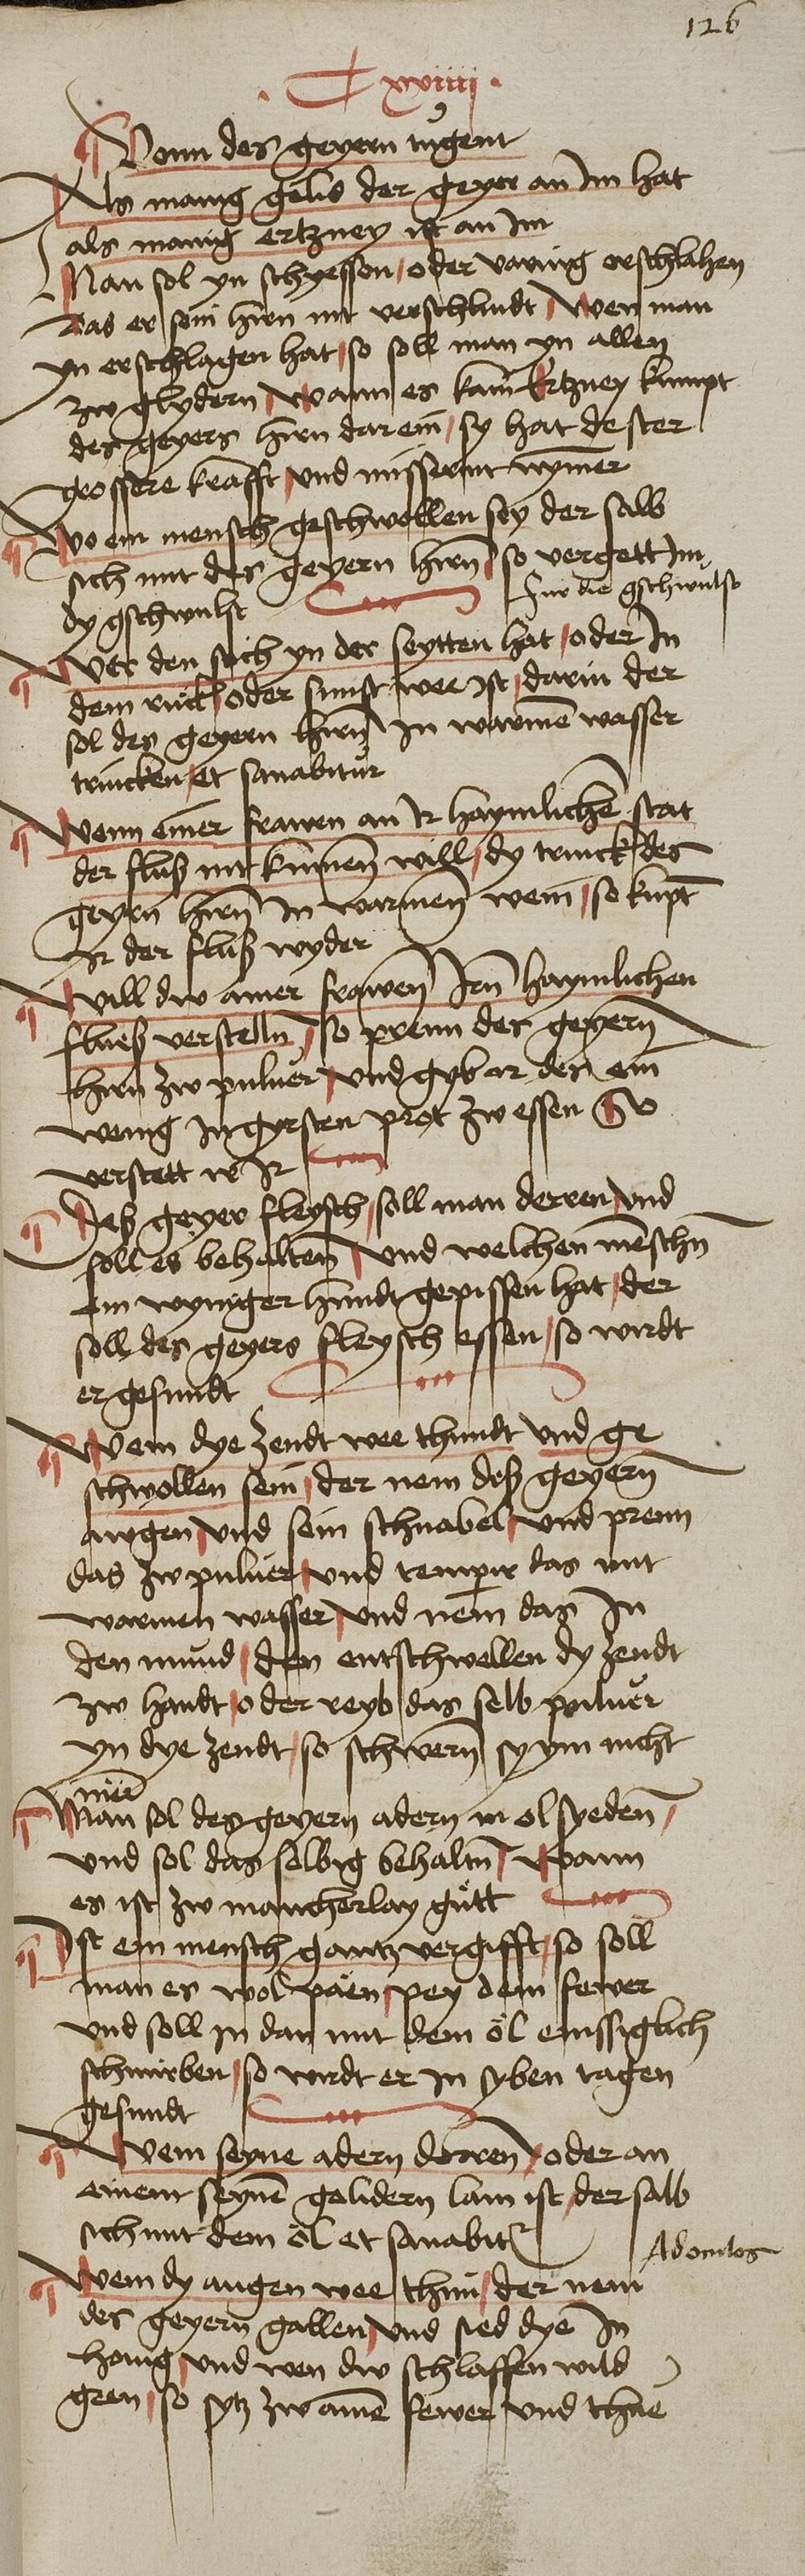 126
· C xxiiij ·
Vonn des geyern tugent
Als manig gelid der geyer an Im hat
als manig ertzney ist an Im
Man sol yn schyessen / oder varing erschlahen
Das er sein hirn nit verschlindt / Wen man
yn erschlagen hat / so soll man yn allen
zw glydern / Wann es kain Ertzney kumpt
des geyers hirn darein / sy hat dester
grossere krafft / und nymer
Wo ein mensch geschwollen sey der salb
sich mit des geyern hirn / so vergett Im
dy gschwulst
Fur die gschwulst
Wer den stich yn der seytten hat / oder In
dem ruck / oder sunst wee ist / darin der
sol des geyern hirn In warmē wasser
trincken / et sanabitur
Wenn einer frawen an Ir haymlichē stat
der fluß nit kumen will / dy trinck des
geyrn hirn In warmen wein / so kupt
Ir der fluß wyder
Will dw ainer frawen Irn haymlichen
flueß verstelln / so prenn des geyern
hirn zw puluer / und gyb ir des ein
wenig In gersten prot zw essen So
verstett er Ir
Deß geyer fleysch / soll man derren / und
soll es behalten / und welchen mēschn
ein wyniger hundt gepissen hat / der
soll des geyers fleysch essen / so wirdt
er gesundt
Wem dye zendt wee thundt und ge
schwollen sein / der nem deß geyern
awgen / und sein schnabel / und prenn
das zw puluer / und temperir das mit
warmen wasser / und nem das In
den mund / den entschwellen dy zendt
zw handt / oder reyb das selb puluer
yn dye zendt / so schwern sy ym nicht
mer
Man sol des geyern adern in ol syeden /
und sol das selbig behaltn / Wann
es ist zw mancherlay gutt
Ist ein mensch gantz vergifft / so soll
man es wol päen / pey dem fewer
und soll In dan mit dem öl emssiglich
schmirben / so wirdt er In syben tagen
gesundt
Wem seyne adern dorren / oder an
einem seynē gelidern lam ist / der salb
sich mit dem öl et sanabitur
Wem dy augen wee thun / der nem
des geyern gallen / und sied dye In
honig / und wen dw schlaffen wild
geen / so sytz zw ainē fewer und thue